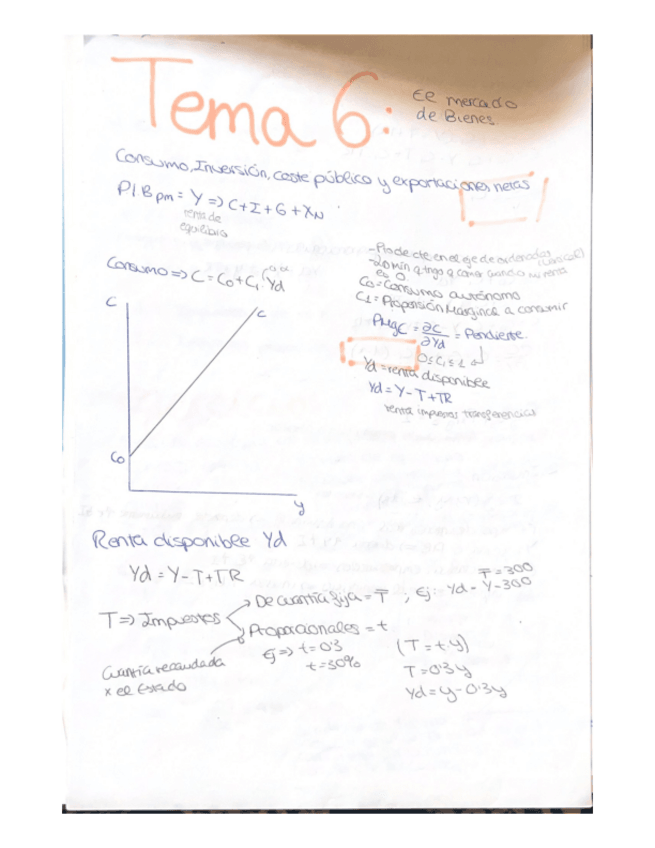 Tema 6:
El mercado
de Bienes.
Consumo, Inversión, coste público y exportaciones netas
PIBpm = Y => C+I+G+XN
renta de
equilibrio
Consumo => C = C0 + C1 · Yd
- Pto de cte en el eje de ordenadas
- Lo min q tngo q comer cuando mi renta
es 0.
C0 = Consumo autónomo
C1 = Proporsión Marginal a consumir
PMgC = ∂C/∂Yd = Pendiente.
0 ≤ C1 ≤ 1
Yd = renta disponible
Yd = Y - T + TR
renta impuestos transferencias
C
C
C0
y
Renta disponible Yd
Yd = Y - T + TR
T => Impuestos
De cuantía fija = T̅ , Ej: Yd = Y - 300
T̅ = 300
Proporcionales = t
Ej => t = 0'3
t = 30%
(T = t y)
T = 0'3 y
Yd = y - 0'3y
Cuantía recaudada
x el Estado